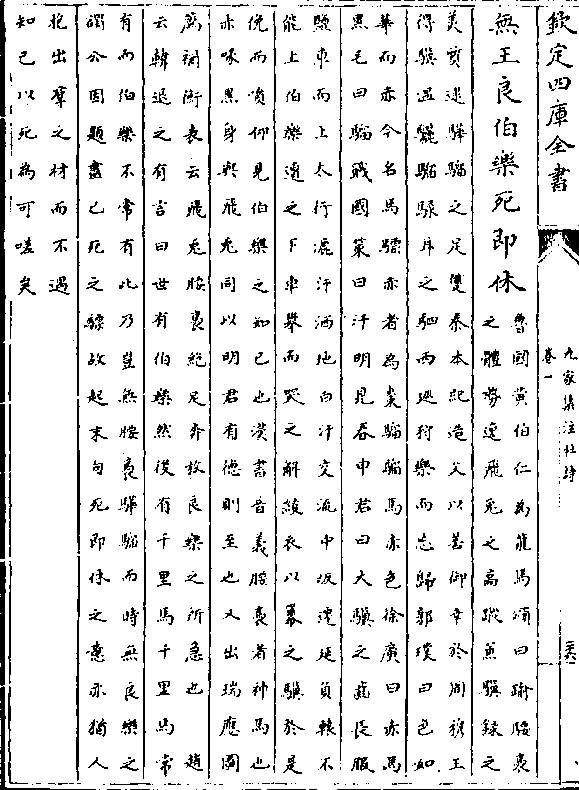 欽定四庫全書
九家集注杜詩
卷一
無王良伯樂死即休
魯國黃伯仁為龍馬頌曰踰騕褭
之體勢逸飛兔之高蹤兼驥騄之
美質逮驊騮之足雙秦本紀造父以善御幸於周穆王
得驥溫驪騮騄耳之駟西巡狩樂而忘歸郭璞曰色如
華而赤今名馬驃赤者為棗騮騮馬赤色徐廣曰赤馬
黑毛曰騮戰國策曰汗明見春申君曰大驥之齒長服
鹽車而上太行漉汗洒地白汗交流中坂遷延負轅不
能上伯樂遭之下車攀而哭之解紵衣以冪之驥於是
俛而噴仰見伯樂之知己也漢書音義騕褭者神馬也
赤喙黑身與飛兔同以明君有德則至也又出瑞應圖
薦禰衡表云飛兔騕褭絕足奔放良樂之所急也 趙
云韓退之有言曰世有伯樂然後有千里馬千里馬常
有而伯樂不常有此乃豈無騕褭驊騮而時無良樂之
謂公因題畫已死之驃故起末句死即休之意亦猶人
抱出羣之材而不遇
知己以死為可嗟矣